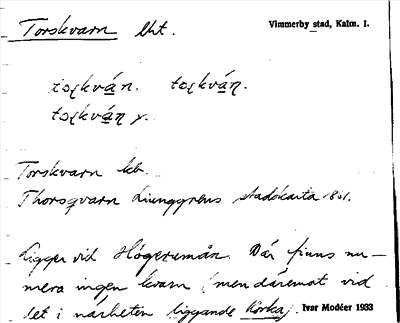 Torskvarn lht.
Vimmerby stad, Kalm. l.
Torskvarn kb.
Thorsqvarn Ljunggrens stadskarta 1861.
Ligger vid Högerumsån. Där finns nu-
mera ingen kvarn (men däremot vid
det i närheten liggande Krokaj.
Ivar Modéer 1933